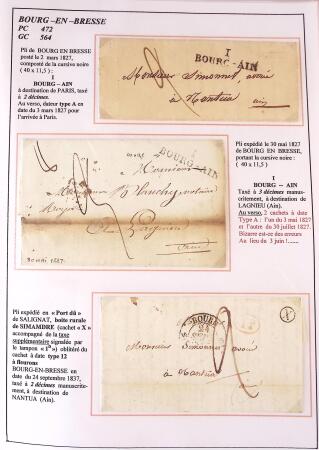 BOURG-EN-BRESSE
PC 472
GC 564
Pli de BOURG EN BRESSE
posté le 2 mars 1827,
composté de la cursive noire :
( 40 x 11,5 ) :
I
BOURG - AIN
à destination de PARIS, taxé
à 2 décimes.
Au verso, dateur type A en
date du 3 mars 1827 pour
l'arrivée à Paris.
I
BOURG-AIN
Monsieur Simonnet, avoué
à Nantua
ain
Pli expédié le 30 mai 1827
de BOURG EN BRESSE,
portant la cursive noire :
( 40 x 11,5 )
I
BOURG - AIN
Taxé à 3 décimes manus-
critement, à destination de
LAGNIEU (Ain).
Au verso, 2 cachets à date
Type A : l'un du 3 mai 1827
et l'autre du 30 juillet 1827.
Bizarre est-ce des erreurs
Au lieu du 3 juin !......
BOURG-AIN
Monsieur
30 mai 1827
Pli expédié en « Port dû »
de SALIGNAT, boîte rurale
de SIMANDRE (cachet « X »
accompagné de la taxe
supplémentaire signalée par
le tampon « 1D ») oblitéré du
cachet à date type 12
à fleurons
BOURG-EN-BRESSE en
date du 24 septembre 1837,
taxé à 2 décimes manuscrite-
ment, à destination de
NANTUA (Ain).
BOURG
24
X
Monsieur Simonnet avoué
à Nantua